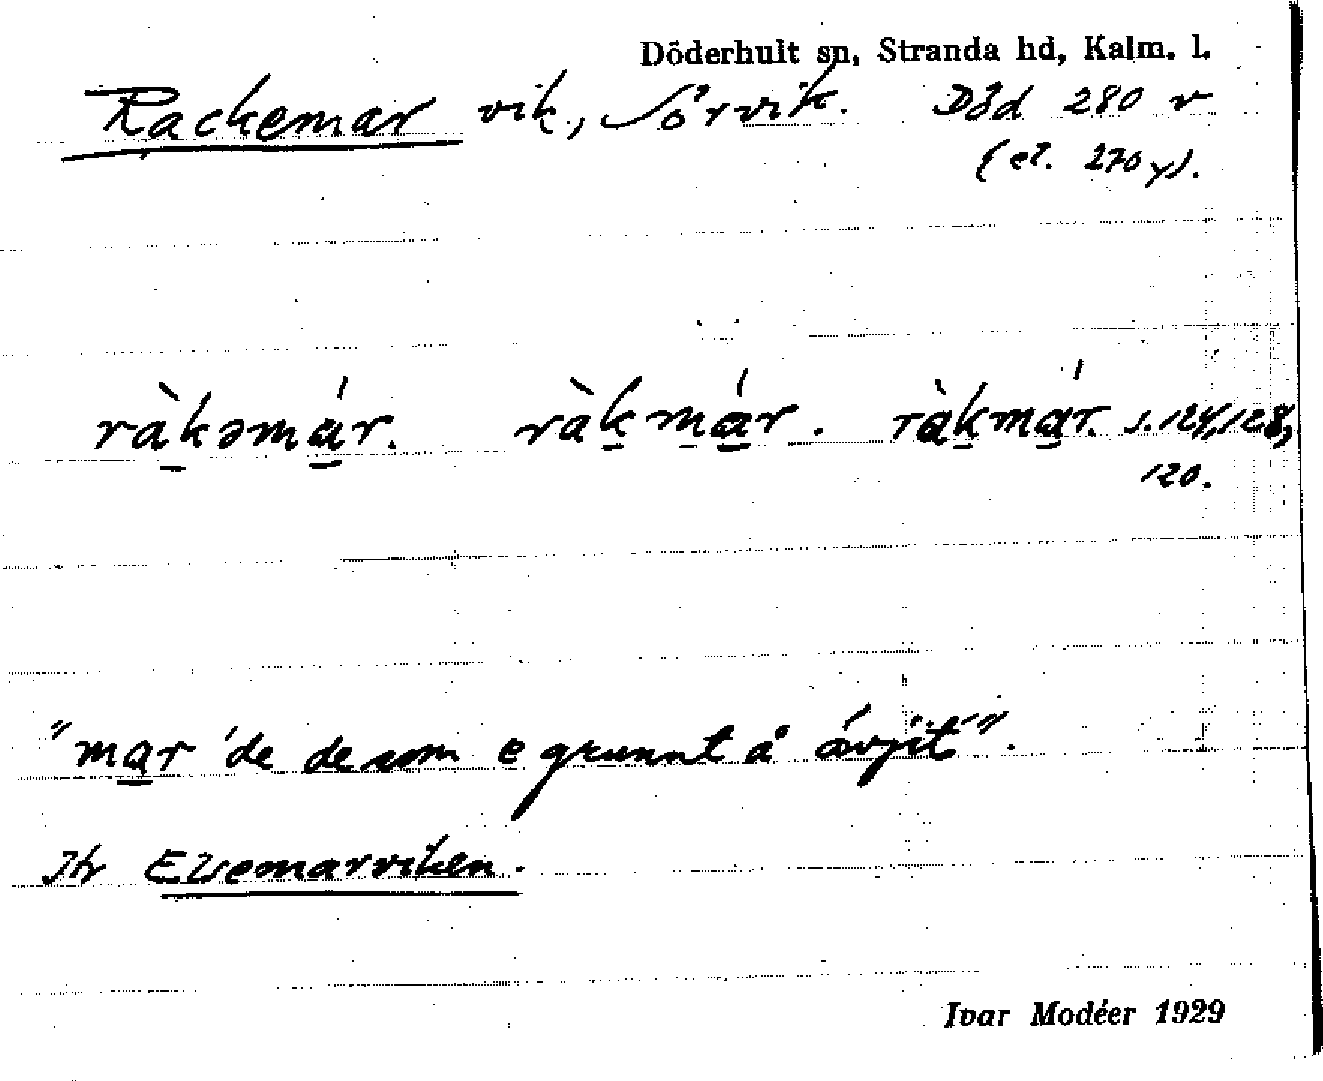 Döderhult sn, Stranda hd, Kalm. l.
Rackemar vik, Sörvik. Död 280 v
(et. 270 y).
ràkəmár. ràkmár. ràkmár. s. 124, 128,
120.
"mar 'de de som e grunnt å óvjit".
Jfr Elvemarviken.
Ivar Modéer 1929